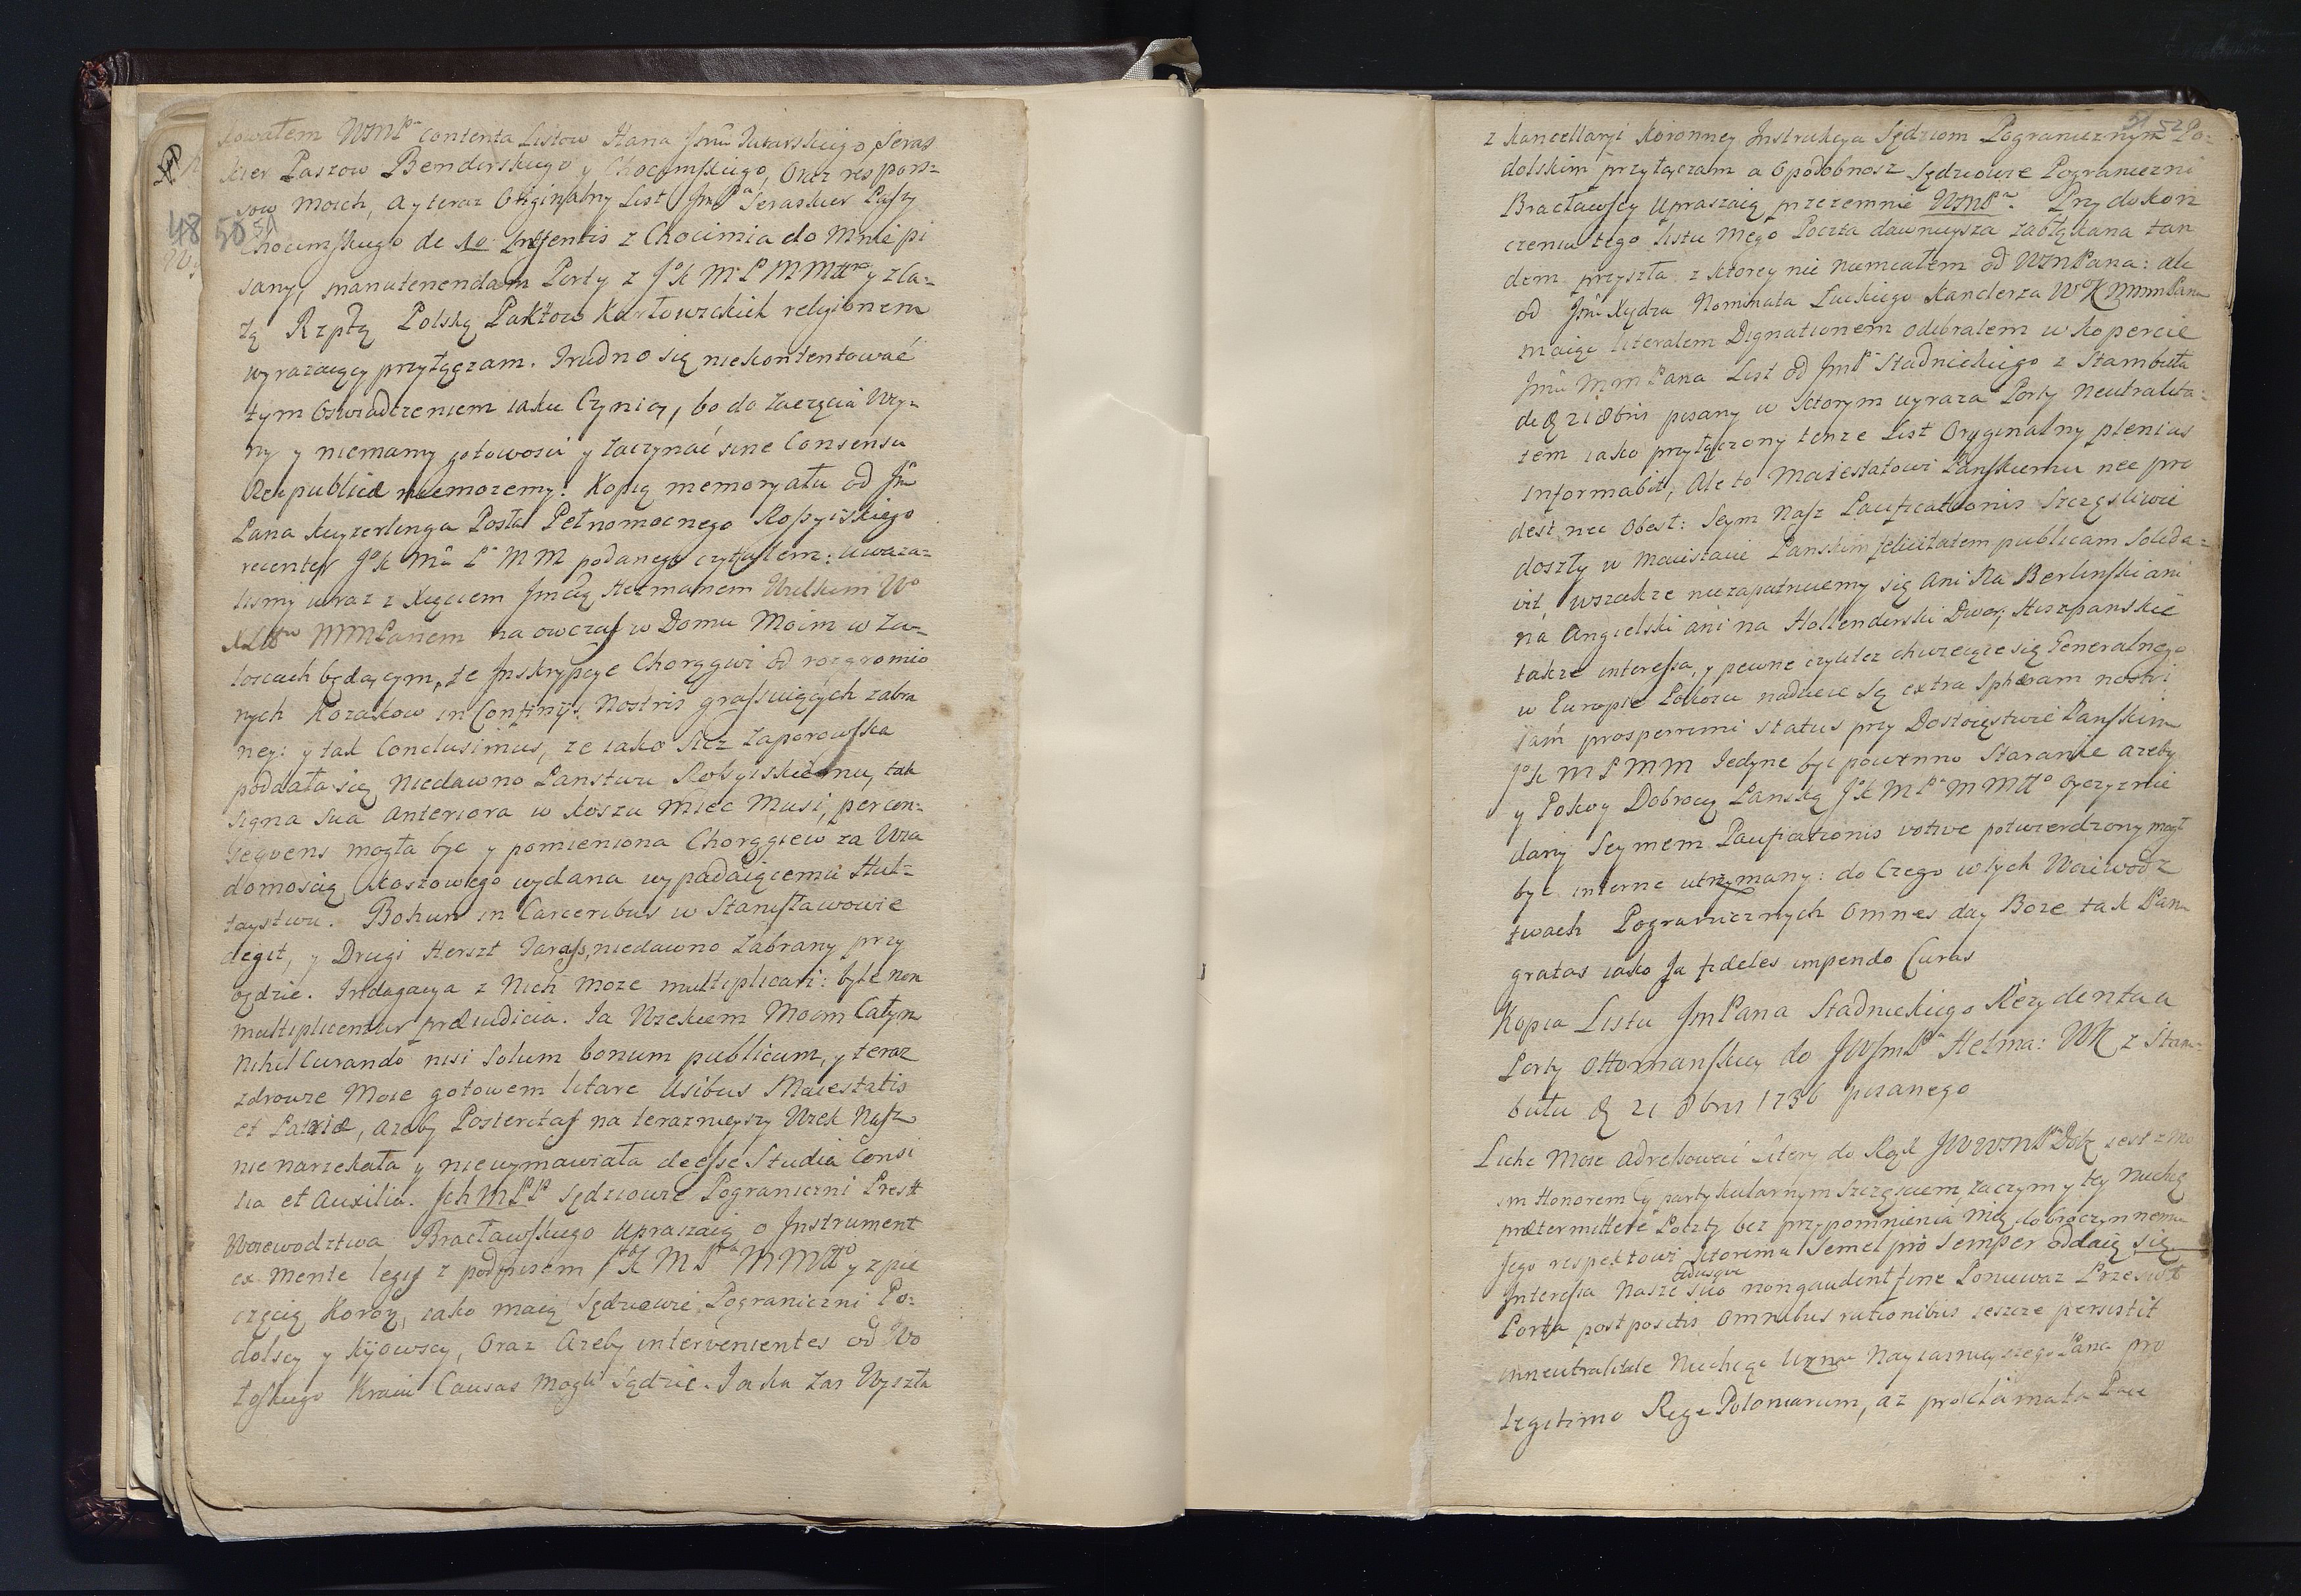 kowałem WMP<sup>a</sup> contenta Listow Hana Jmci Tatarskiego Seras
kier Paszow Benderskiego y Chocimskiego, Oraz respons=
sow moich, a y teraz Originalny List JmP<sup>a</sup> Seraskier Paszy
Chocimskiego de 10 Insentis z Chocimia do Mnie pi
sany, manutenendam Porty z J<sup>o</sup>K M P M M y z Ca=
łą Rzptą Polską Paktow Karłowickich religionem
wyrazaiący przyłączam. Trudno się niekontentować
tym Oswiadczeniem iakie Czynią, bo do Zaczęcia Woy=
ny y niemamy gotowosci y zaczynać sine Consensu
Reipublicæ niemozemy. Kopią memoryału od Jmci
Pana Kuyzerlinga Posła Pełnomocnego Rossyiskiego
recenter J<sup>o</sup>K Mci P M M podanego czytałem: uwaza=
lismy wraz z Xięciem Jmcią Hetmanem Wielkim W<sup>o</sup>
XLitt MMPanem na owczas w Domu Moim w Za=
łoscach będącym, ze Inskrypcye Chorągwi od rozgromio
nych Kozakow in Confinijs Nostris grassuiących zabra
ney: y tak Conclusimus, ze iako Sicz Zaporowska
poddała się Niedawno Panstwu Rossyiskiemu, tak
signa sua anteriora w Koszu Miec Musi, per con=
seqvens mogła byc y pomieniona Chorągiew za Wia
domoscią Koszowego wydana wypadaiącemu Hul=
taystwu. Bohun in Carceribus w Stanisławowie
degit, y Drugi Herszt Taras, niedawno Zabrany przy
będzie. Indagacya z Nich moze multiplicari: byle non
multiplicentur præiudicia. Ja Wiekiem Moim Całym
Nihil Curando nisi Solum bonum publicum, y teraz
zdrowie Moie gotowem litare Usibus Maiestatis
et Patriæ, azeby Posteritas na terazniejszy Wiek Nasz
nie narzekała y niewymawiała deesse Studia Consi
lia et Auxilia. Ich M PP Sędziowie Pograniczni Prestt
Woiewodztwa Bracławskiego Upraszaią o Instrument
ex Mente legis z podpisem J<sup>o</sup>K M P<sup>a</sup> M M y z pie
częcią Korony, iako maią Sędziowie Pograniczni Po=
dolscy y Kijowscy, Oraz Azeby intervenientes od Wo
łoskiego Kraiu Causas mogli Sądzić. Jaka zas Wyszła
z Kancellaryi Koronney Instrukcya Sędziom Pogranicznym Po=
dolskim przyłączam a Opodobnosz Sędziowie Pograniczni
Bracławscy Upraszaią przezemnie WMP<sup>a</sup>. Przy dokon
czeniu tego listu Mego Poczta dawnieysza zabłąkana tan
dem przyszła z ktorey nie niemiałem od WMPana: ale
od Jmci Xiędza Nominata Łuckiego Kanclerza W K MMmPana
maiąc literalem Dignationem odebrałem w kopercie
Jmci MmPana List od JmP<sup>a</sup> Stadnickiego z Stambułu
de d 21 8bris pisany w ktorym wyraza Porty Neutralita=
tem iako przyłączony tenze List Oryginalny plenius
Informabit, Ale to Maiestatowi Panskiemu nec pro
dest nec Obest: Seym Nasz Pacificationis Szczęsliwie
doszły w Maiestacie Panskim felicitatem publicam Solida=
vit, wszakze niezapatruiemy się Ani Na Berlinski ani
na Angielski ani na Hollenderski Dwor; Hiszpanskie
takze interessa, y pewne czyliteż chwieiące się Generalnego
w Europie Pokoiu nadzieie Są extra Sphæram nostri
iam prosperrimi Status przy Dostoięstwie Panskim
J<sup>o</sup>K M P M M Jedyne byc powinno Staranie azeby
y Pokoy Dobrocią Panską J<sup>o</sup>K M P<sup>a</sup> M M Oyczyznie
dany Seymem Pacificationis votive potwierdzony mogł
byc interne utrzymany: do Czego w tych Woiewodz
twach Pogranicznych Omnes day Boze tak Panu
gratas iako Ja fideles impendo Curas
Kopia Listu JmPana Stadnickiego Rezydenta u
Porty Ottomanskiey do JWJmP<sup>a</sup> Hetma: WK z Stam=
bułu d 21 8bris 1736 pisanego
Liche Moie adressować Litery do Rąk JWWMP<sup>a</sup> Dobr iest z mo
im Honorem y partykularnym Szczęsciem, zaczym y tey niechcę
prætermittere Poczty bez przypomnienia Mię dobroczynnemu
Jego respektowi ktoremu Semel pro Semper oddaię się
Interessa Nasze suo adusque non gaudent fine Poniewaz Przeswt
Porta postpositis Omnibus rationibus ieszcze persistit
in neutralitate Niechcąc Uznac Nayiasnieyszego Pana pro
legitimo Rege Poloniarum, az proclamata Pace